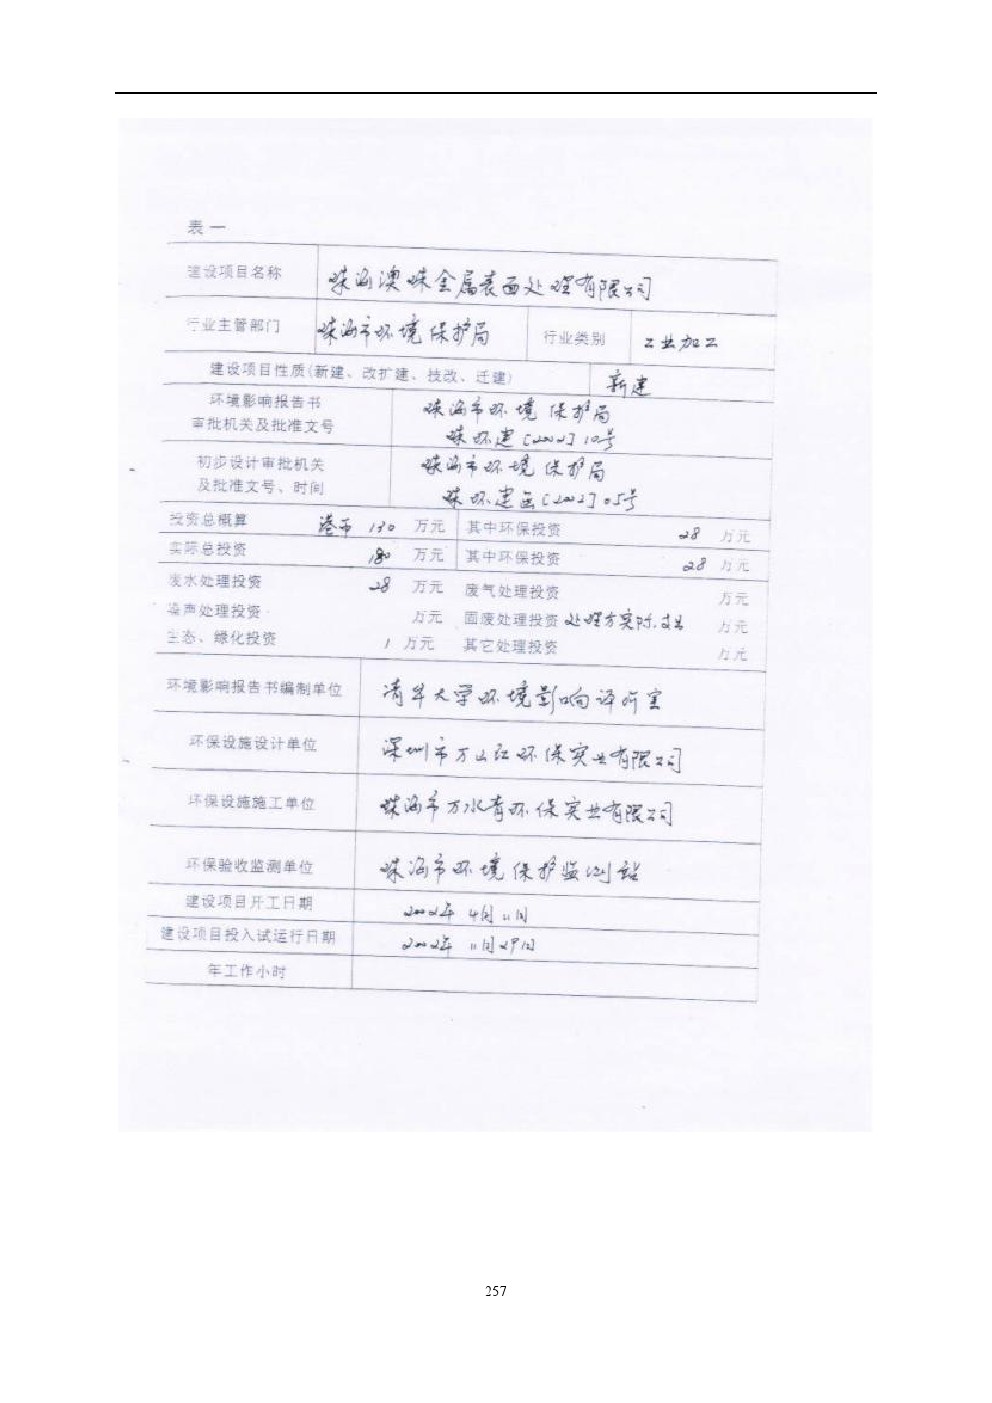 表一
建设项目名称 珠海澳珠金属表面处理有限公司
行业主管部门 珠海市环境保护局 行业类别 工业加工
建设项目性质(新建、改扩建、技改、迁建) 新建
环境影响报告书 珠海市环境保护局
审批机关及批准文号 珠环建[2002]10号
初步设计审批机关 珠海市环境保护局
及批准文号、时间 珠环建函[2002]05号
投资总概算 港币 130 万元 其中环保投资 28 万元
实际总投资 180 万元 其中环保投资 28 万元
废水处理投资 28 万元 废气处理投资 万元
噪声处理投资 万元 固废处理投资 处理方实际 万元
生态、绿化投资 1 万元 其它处理投资 万元
环境影响报告书编制单位 清华大学环境影响评价室
环保设施设计单位 深圳市万山红环保实业有限公司
环保设施施工单位 珠海市万水青环保实业有限公司
环保验收监测单位 珠海市环境保护监测站
建设项目开工日期 2002年4月11日
建设项目投入试运行日期 2002年11月29日
年工作小时
257